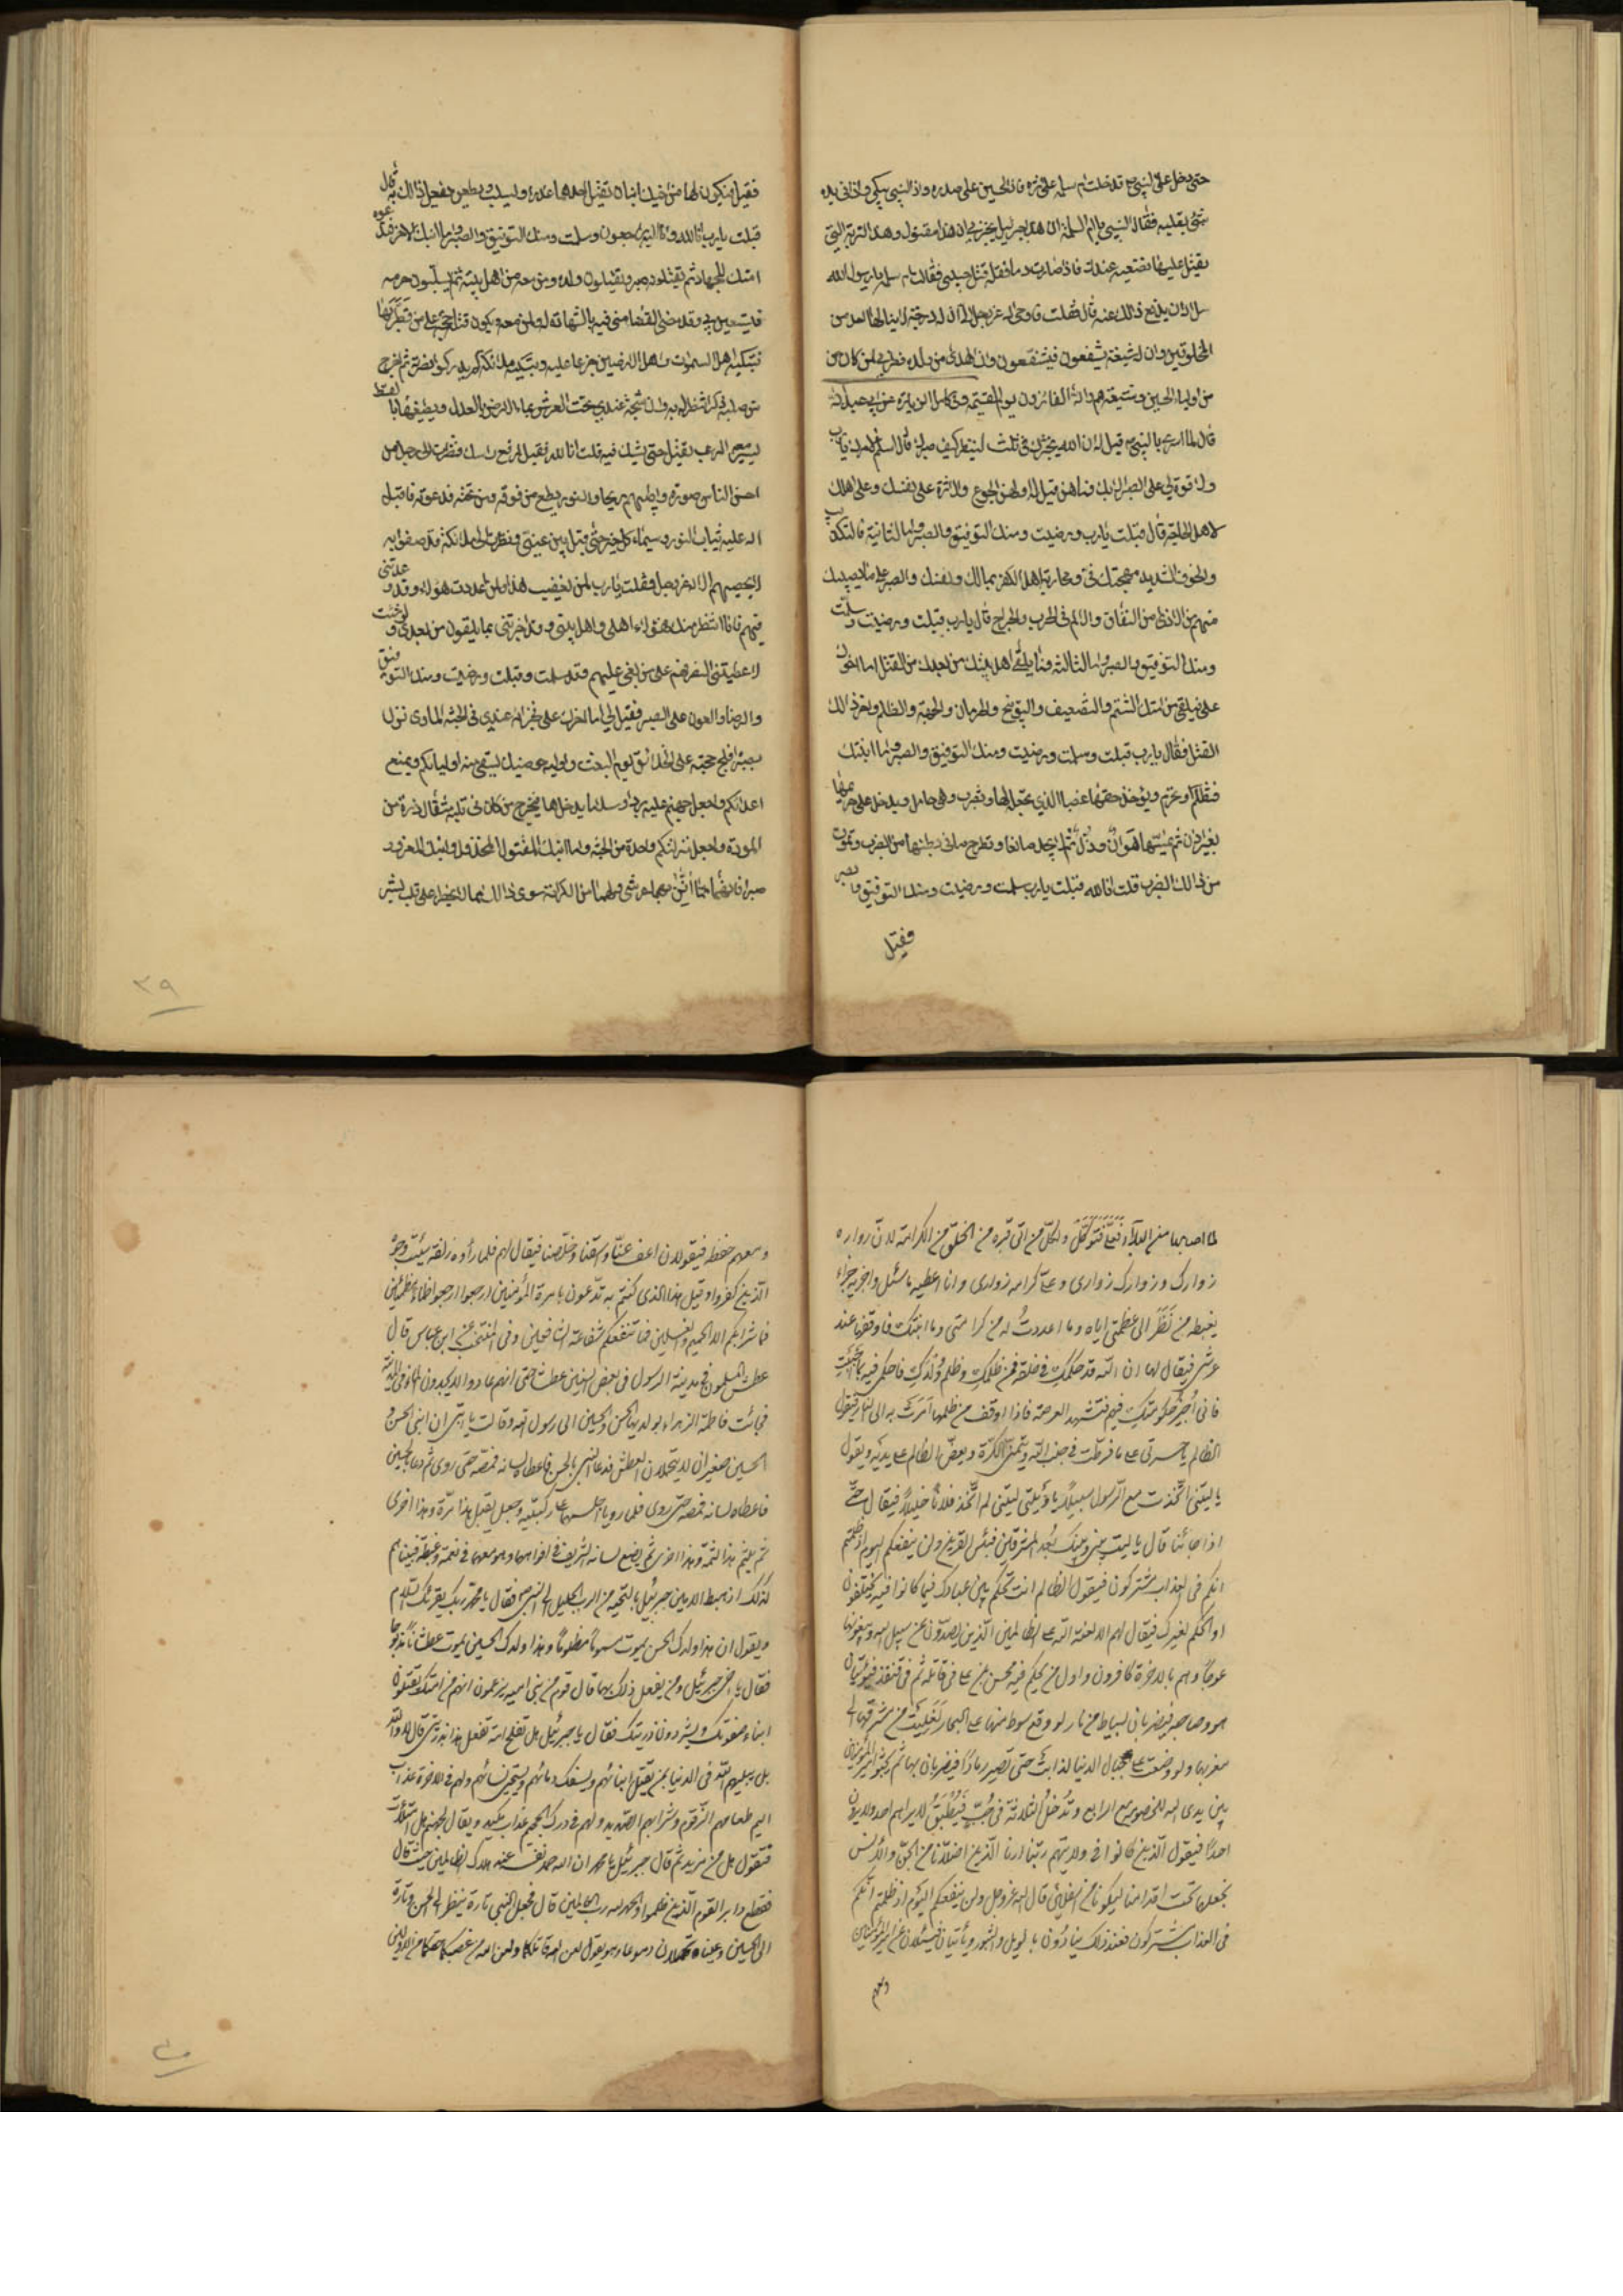 حتى دخل على النبي ص فدخلت ام سلمه على اثره فاذا الحسين على صدره واذا النبي يبكي واذا في يده
شئ يقلبه فقال النبي يا ام سلمة ان هذا جبرئيل يخبرني ان هذا مقتول وهذه التربة التي
يقتل عليها فضعيه عندك فاذا صارت دما فقد قتل حبيبي فقالت ام سلمه يا رسول الله
سل الله ان يدفع ذلك عنه قال فعلت فاوحى الله عز وجل الي ان له درجة لا ينالها احد من
المخلوقين وان له شيعة يشفعون فيشفعون وان المهدي من ولده فطوبى لمن كان من
من اولياء الحسين وشيعته هم والله الفائزون يوم القيمه وفي كامل الزيارة عن ابي عبدالله
قال لما اسرى بالنبي ص قيل له ان الله يختبرك في ثلث لينظر كيف صبرك قال اسلم لامرك يا رب
ولا قوة لي على الصبر الا بك فما هن قيل له اولهن الجوع والاثرة على نفسك وعلى اهلك
لاهل الحاجة قال قبلت يا رب ورضيت وسلمت ومنك التوفيق والصبر واما الثانية فالتكذيب
والخوف الشديد وبذلك مهجتك في ومحاربة اهل الكفر بمالك ونفسك والصبر على ما يصيبك
منهم من الاذى ومن اهل النفاق والالم في الحرب والجراح قال يا رب قبلت ورضيت وسلمت
ومنك التوفيق والصبر واما الثالثة فما يلقى اهل بيتك من بعدك من القتل اما اخوك
علي فيلقى من امتك الشتم والتضعيف والتوبيخ والحرمان والجهد والظلم واخر ذلك
القتل فقال يا رب قبلت وسلمت ورضيت ومنك التوفيق والصبر واما ابنتك
فتظلم وتحرم ويؤخذ حقها غصبا الذي تجعل لها وتضرب وهي حامل ويدخل على حريمها
بغير اذن ثم يمسها هوان وذل ثم لا تجد مانعا وتطرح ما في بطنها من الضرب وتموت
من ذلك الضرب قلت انا لله قبلت يا رب وسلمت ورضيت ومنك التوفيق والصبر
فقيل
فقيل ويكون لها من اخيك ابنان يقتل احدهما غدرا ويسلب ويطعن يفعل ذلك به
قبلت يا رب انا لله وانا اليه راجعون وسلمت ومنك التوفيق والصبر واما ابنك الاخر فتدعوه
امتك للجهاد ثم يقتلونه صبرا ويقتلون ولده ومن معه من اهل بيته ثم يسلبون حرمه
فيستعين بي وقد مضى القضاء مني فيه بالشهاده له ولمن معه ويكون قتله حجة على من قطريها
فتبكيه اهل السموات واهل الارضين جزعا عليه وتبكيه ملائكة لم يدركوا نصرته ثم اخرج
من صلبه ذكرا انتصر له به وان شبحه عندي تحت العرش يملا الارض بالعدل ويطبقها بالقسط
يسير معه الرعب يقتل حتى يشك فيه قلت انا لله فقيل ارفع راسك فنظرت الى رجل من
احسن الناس صورة واطيبهم ريحا والنور يسطع من فوقه ومن تحته فدعوته فاقبل
الي عليه ثياب النور وسيماء كل خير حتى قبل بين عيني ونظرت الى ملائكة قد حفوا به
لا يحصيهم الا الله عز وجل فقلت يا رب لمن يغضب هذا ولمن اعددت هؤلاء وقد وعدتني
فيهم فانا انتظر منك هؤلاء اهلي واهل بيتي وقد اخبرتني بما يلقون من بعدي ولو شئت
لاعطيتني النصر فيهم على من بغى عليهم وقد سلمت وقبلت ورضيت ومنك التوفيق
والرضا والعون على الصبر فقيل لي اما اخوك علي فجزائه عندي في الجنة الماوى نزلا
بصبره افلج حجته على الخلائق يوم البعث واوليه حوضك يسقي منه اوليائكم ويمنع
اعدائكم واجعل جهنم عليه بردا وسلاما يدخلها فيخرج من كان في قلبه مثقال ذرة من
المودة واجعل منزلتكم واحدة من الجنة واما ابنك المقتول المخذول وابنك المغدور
صبرا فانهما مما ازين بهما عرشي ولهما من الكرامة سوى ذلك مما لا يخطر على قلب بشر
٣٩
لما اصابهما من البلاء فعليَّ فتوكل ولكل من اتى قبره من الخلق من الكرامة لان زواره
زوارك وزوارك زواري وعلي كرامه زواري وانا اعطيه ما سئل واجزيه جزاء
يغبطه من نظر الى عظمتي اياه وما اعددت له من كرامتي وما ابنتك فاوقفها عند
عرشي فيقال لها ان الله قد حكمك في خلقه فمن ظلمك وظلم ولدك فاحكمي فيه بما احببت
فاني اجيز حكومتك فيهم فتشهد العرصة فاذا اوقف من ظلمها امرت به الى النار فيقول
الظالم يا حسرتى على ما فرطت في جنب الله ويتمنى الكرة ويعض الظالم على يديه ويقول
يا ليتني اتخذت مع الرسول سبيلا يا ويلتى ليتني لم اتخذ فلانا خليلا فيقال حتى
اذا جائنا قال يا ليت بيني وبينك بعد المشرقين فبئس القرين ولن ينفعكم اليوم اذ ظلمتم
انكم في العذاب مشتركون فيقول الظالم انت تحكم بين عبادك فيما كانوا فيه يختلفون
او الحكم لغيرك فيقال لهم الا لعنة الله على الظالمين الذين يصدون عن سبيل الله ويبغونها
عوجا وهم بالاخرة كافرون واول من يحكم فيه محسن بن علي في قاتله ثم في قنفذ فيؤتيان
هو وصاحبه فيضربان بسياط من نار لو وقع سوط منها على البحار لغليت من مشرقها الى
مغربها ولو وضعت على جبال الدنيا لذابت حتى تصير رمادا فيضربان بها ثم يجثو امير المؤمنين
بين يدي الله للخصومة مع الرابع وتدخل الثلاثة في جب فيطبق لا يراهم احد ولا يرون
احدا فيقول الذين كانوا في ولايتهم ربنا ارنا الذين اضلانا من الجن والانس
نجعلهما تحت اقدامنا ليكونا من الاسفلين قال الله عز وجل ولن ينفعكم اليوم اذ ظلمتم انكم
في العذاب مشتركون فعند ذلك ينادون بالويل والثبور ويأتيان فيسئلان عن امير المؤمنين
ومعهم
ومعهم حفظه فيقولان اعف عنا واسقنا وخلصنا فيقال لهم فلما رأوه زلفة سيئت وجوه
الذين كفروا وقيل هذا الذي كنتم به تدعون بامرة المؤمنين ارجعوا ارجعوا ظماء مظمئين
فما شرابكم الا الحميم والغسلين فما تنفعكم شفاعة الشافعين وفي المنتخب عن ابن عباس قال
عطش المسلمون في مدينة الرسول في بعض السنين عطشا حتى انهم عادوا لا يجدون الماء في المدينة
فجائت فاطمة الزهراء بولديها الحسن والحسين الى رسول الله وقالت يا ابتي ان ابني الحسن و
الحسين صغيران لا يتحملان العطش فدعا النبي بالحسن فاعطاه لسانه فمصه حتى روى ثم دعا بالحسين
فاعطاه لسانه فمصه حتى روى فلما رويا اجلسهما على ركبتيه وجعل يقبل هذا مرة وهذا اخرى
ثم يلثم هذا لثمة وهذا اخرى ثم يضع لسانه الشريف في افواههما وهو معهما في نعمة وغبطة فبينا هم
كذلك اذ هبط الامين جبرئيل بالتحيه من الرب الجليل الى النبي ص فقال يا محمد ربك يقرئك السلام
ويقول ان هذا ولدك الحسن يموت مسموما مظلوما وهذا ولدك الحسين يموت عطشانا مذبوحا
فقال يا اخي جبرئيل ومن يفعل ذلك بهما قال قوم من بني اميه يزعمون انهم من امتك يقتلون
ابناء صفوتك ويشردون ذريتك فقال يا جبرئيل هل تفلح امة تفعل هذا بذريتي قال لا والله
بل يبليهم الله في الدنيا بمن يقتل ابنائهم ويسفك دمائهم ويستحيي نسائهم ولهم في الاخرة عذاب
اليم طعامهم الزقوم وشرابهم الصديد ولهم في درك الجحيم عذاب شديد ويقال لجهنم هل امتلأت
فتقول هل من مزيد ثم قال جبرئيل يا محمد ان الله حمد نفسه عند هلاك الظالمين حيث قال
فقطع دابر القوم الذين ظلموا والحمد لله رب العالمين قال فجعل النبي تارة ينظر الى الحسن وتارة
الى الحسين وعيناه تهملان دموعا وهو يقول لعن الله قاتلكما ولعن الله من غصبكما حقكما من الاولين